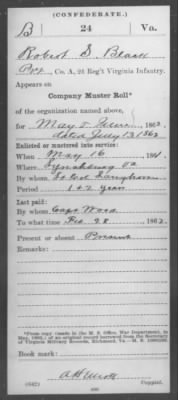 (CONFEDERATE.)
B 24 Va.
Robert S. Black
Pvt, Co. A, 24 Reg't Virginia Infantry.
Appears on
Company Muster Roll*
of the organization named above,
for May & June, 1862.
dated July 13 1862
Enlisted or mustered into service:
When May 16, 1861.
Where Lynchburg Va
By whom
Period 1 & 2 years
Last paid:
By whom Capt Wood
To what time Feb 28, 1862.
Present or absent Present
Remarks:
*From copy (made in the R. & P. Office, War Department, in
of an original record borrowed from the Secretary
of Virginia Military Records, Richmond, Va.
Book mark:
(642)
Copyist.